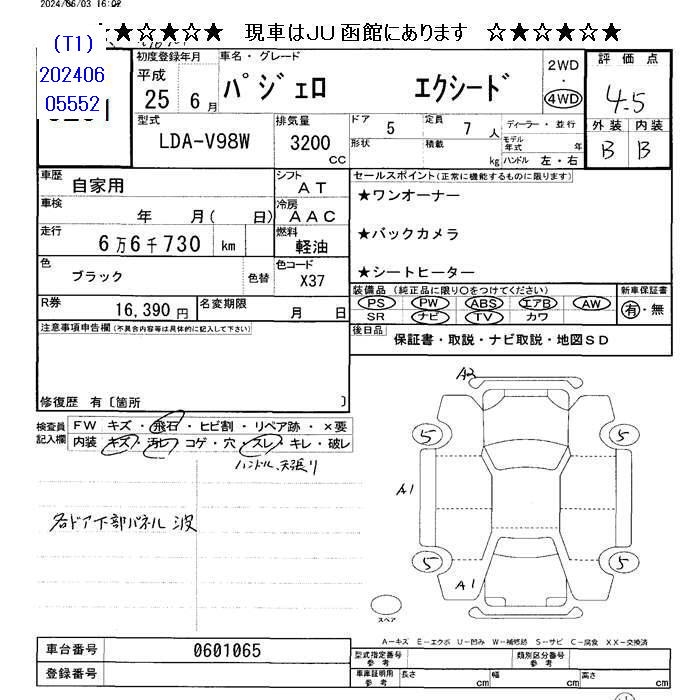 2024/06/03 16:02
★☆★☆★☆ 現車はJU函館にあります ☆★☆★☆★
(T1)
202406
05552
初度登録年月
平成
25年 6月
車名・グレード
パジェロ エクシード
2WD
・
4WD
評価点
4.5
外装 内装
B B
型式
LDA-V98W
排気量
3200
cc
ドア 5
形状
定員 7 人
積載 kg
ディーラー・並行
モデル年式 年
ハンドル 左・右
車歴
自家用
シフト
AT
車検
年 月( 日)
冷房
AAC
走行
6万6千730 km
燃料
軽油
色
ブラック
色替
色コード
X37
R券
16,390円
名変期限
月 日
セールスポイント(正常に機能するものに限ります)
★ワンオーナー
★バックカメラ
★シートヒーター
装備品(純正品に限り○をつけてください)
PS PW ABS エアB AW
SR ナビ TV カワ
新車保証書
有・無
後日品
保証書・取説・ナビ取説・地図SD
注意事項申告欄(不具合内容等は具体的に記入して下さい)
修復歴 有〔箇所 〕
検査員
記入欄
FW キズ・飛石・ヒビ割・リペア跡・×要
内装 キズ・汚レ・コゲ・穴・スレ・キレ・破レ
ハンドル、天張り
各ドア下部パネル 波
A2
5 5
A1
5 5
A1
スペア
A―キズ E―エクボ U―凹み W―補修跡 S―サビ C―腐食 XX―交換済
車台番号 0601065
登録番号
型式指定番号
参考
類別区分番号
参考
車庫証明用
参考
長さ cm
幅 cm
高さ cm